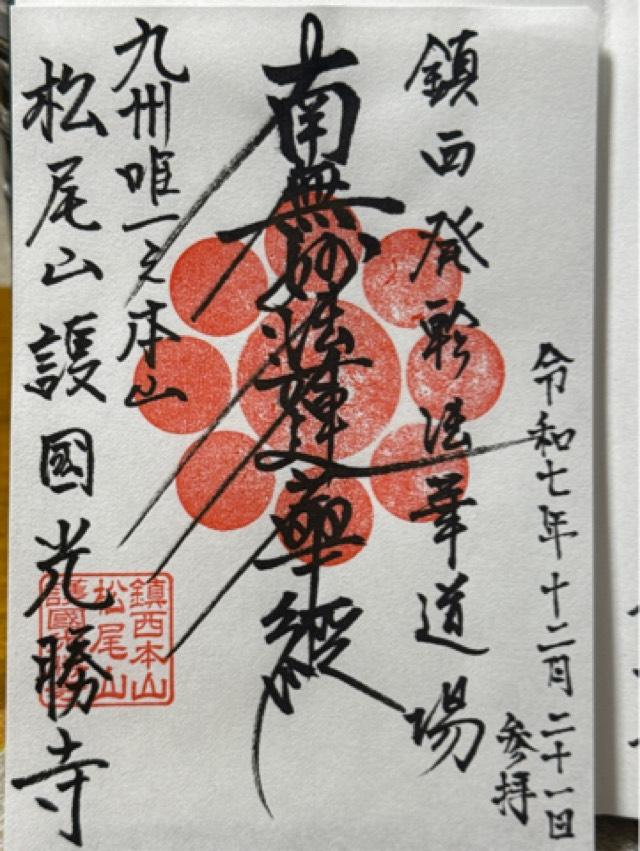 令和七年十二月二十一日
参拝
鎮西発軫法華道場
南無妙法蓮華經
九州唯一之本山
松尾山護國光勝寺
鎮西本山
松尾山
護國